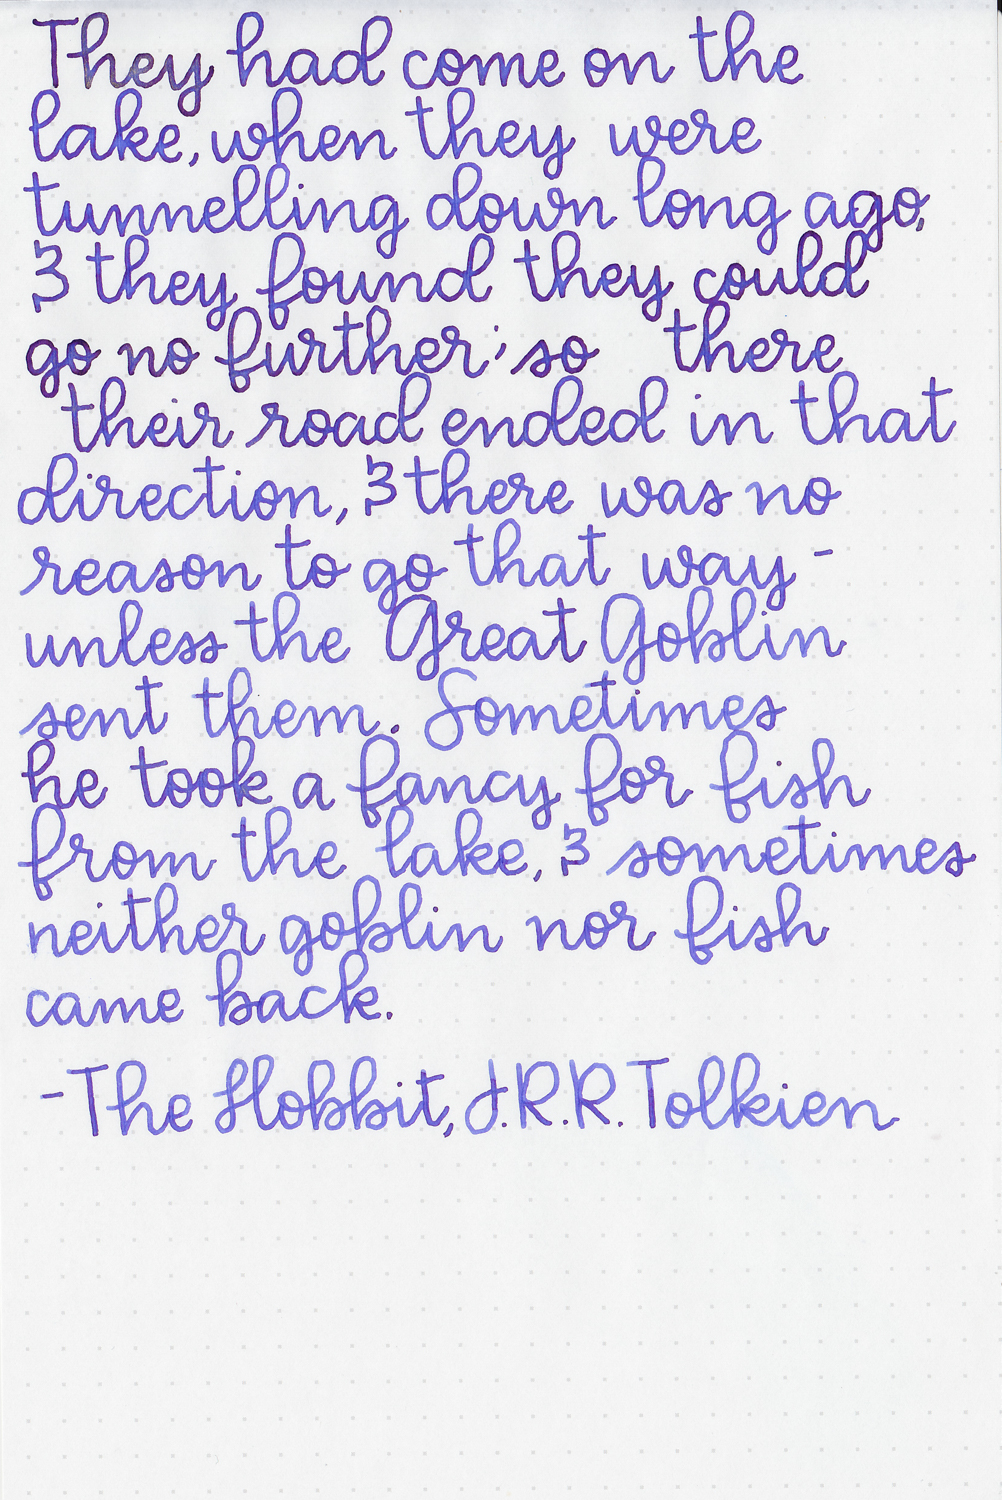 They had come on the
lake, when they were
tunnelling down long ago,
& they found they could
go no further; so there
their road ended in that
direction, & there was no
reason to go that way -
unless the Great Goblin
sent them. Sometimes
he took a fancy for fish
from the lake, & sometimes
neither goblin nor fish
came back.
-The Hobbit, J.R.R. Tolkien